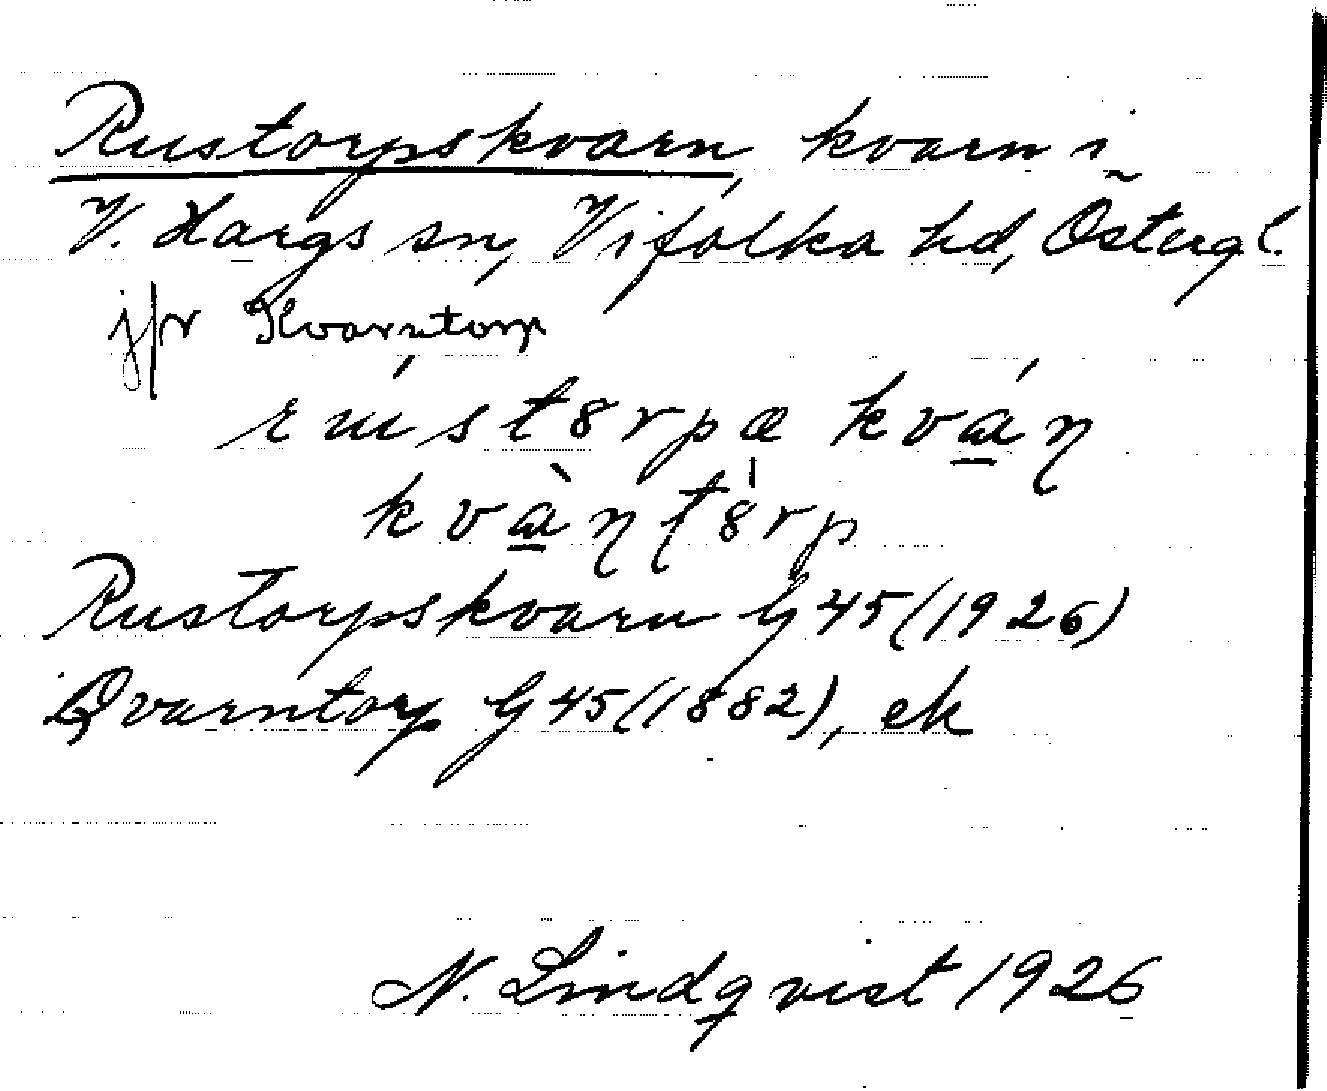 Rustorpskvarn, kvarn i
V. Hargs sn, Vifolka hd, Östergl.
jfr Kvarntorp
kvàṇʈ8rp
Rustorpskvarn G 45 (1926)
Qvarntorp G 45 (1882), ek
N. Lindqvist 1926